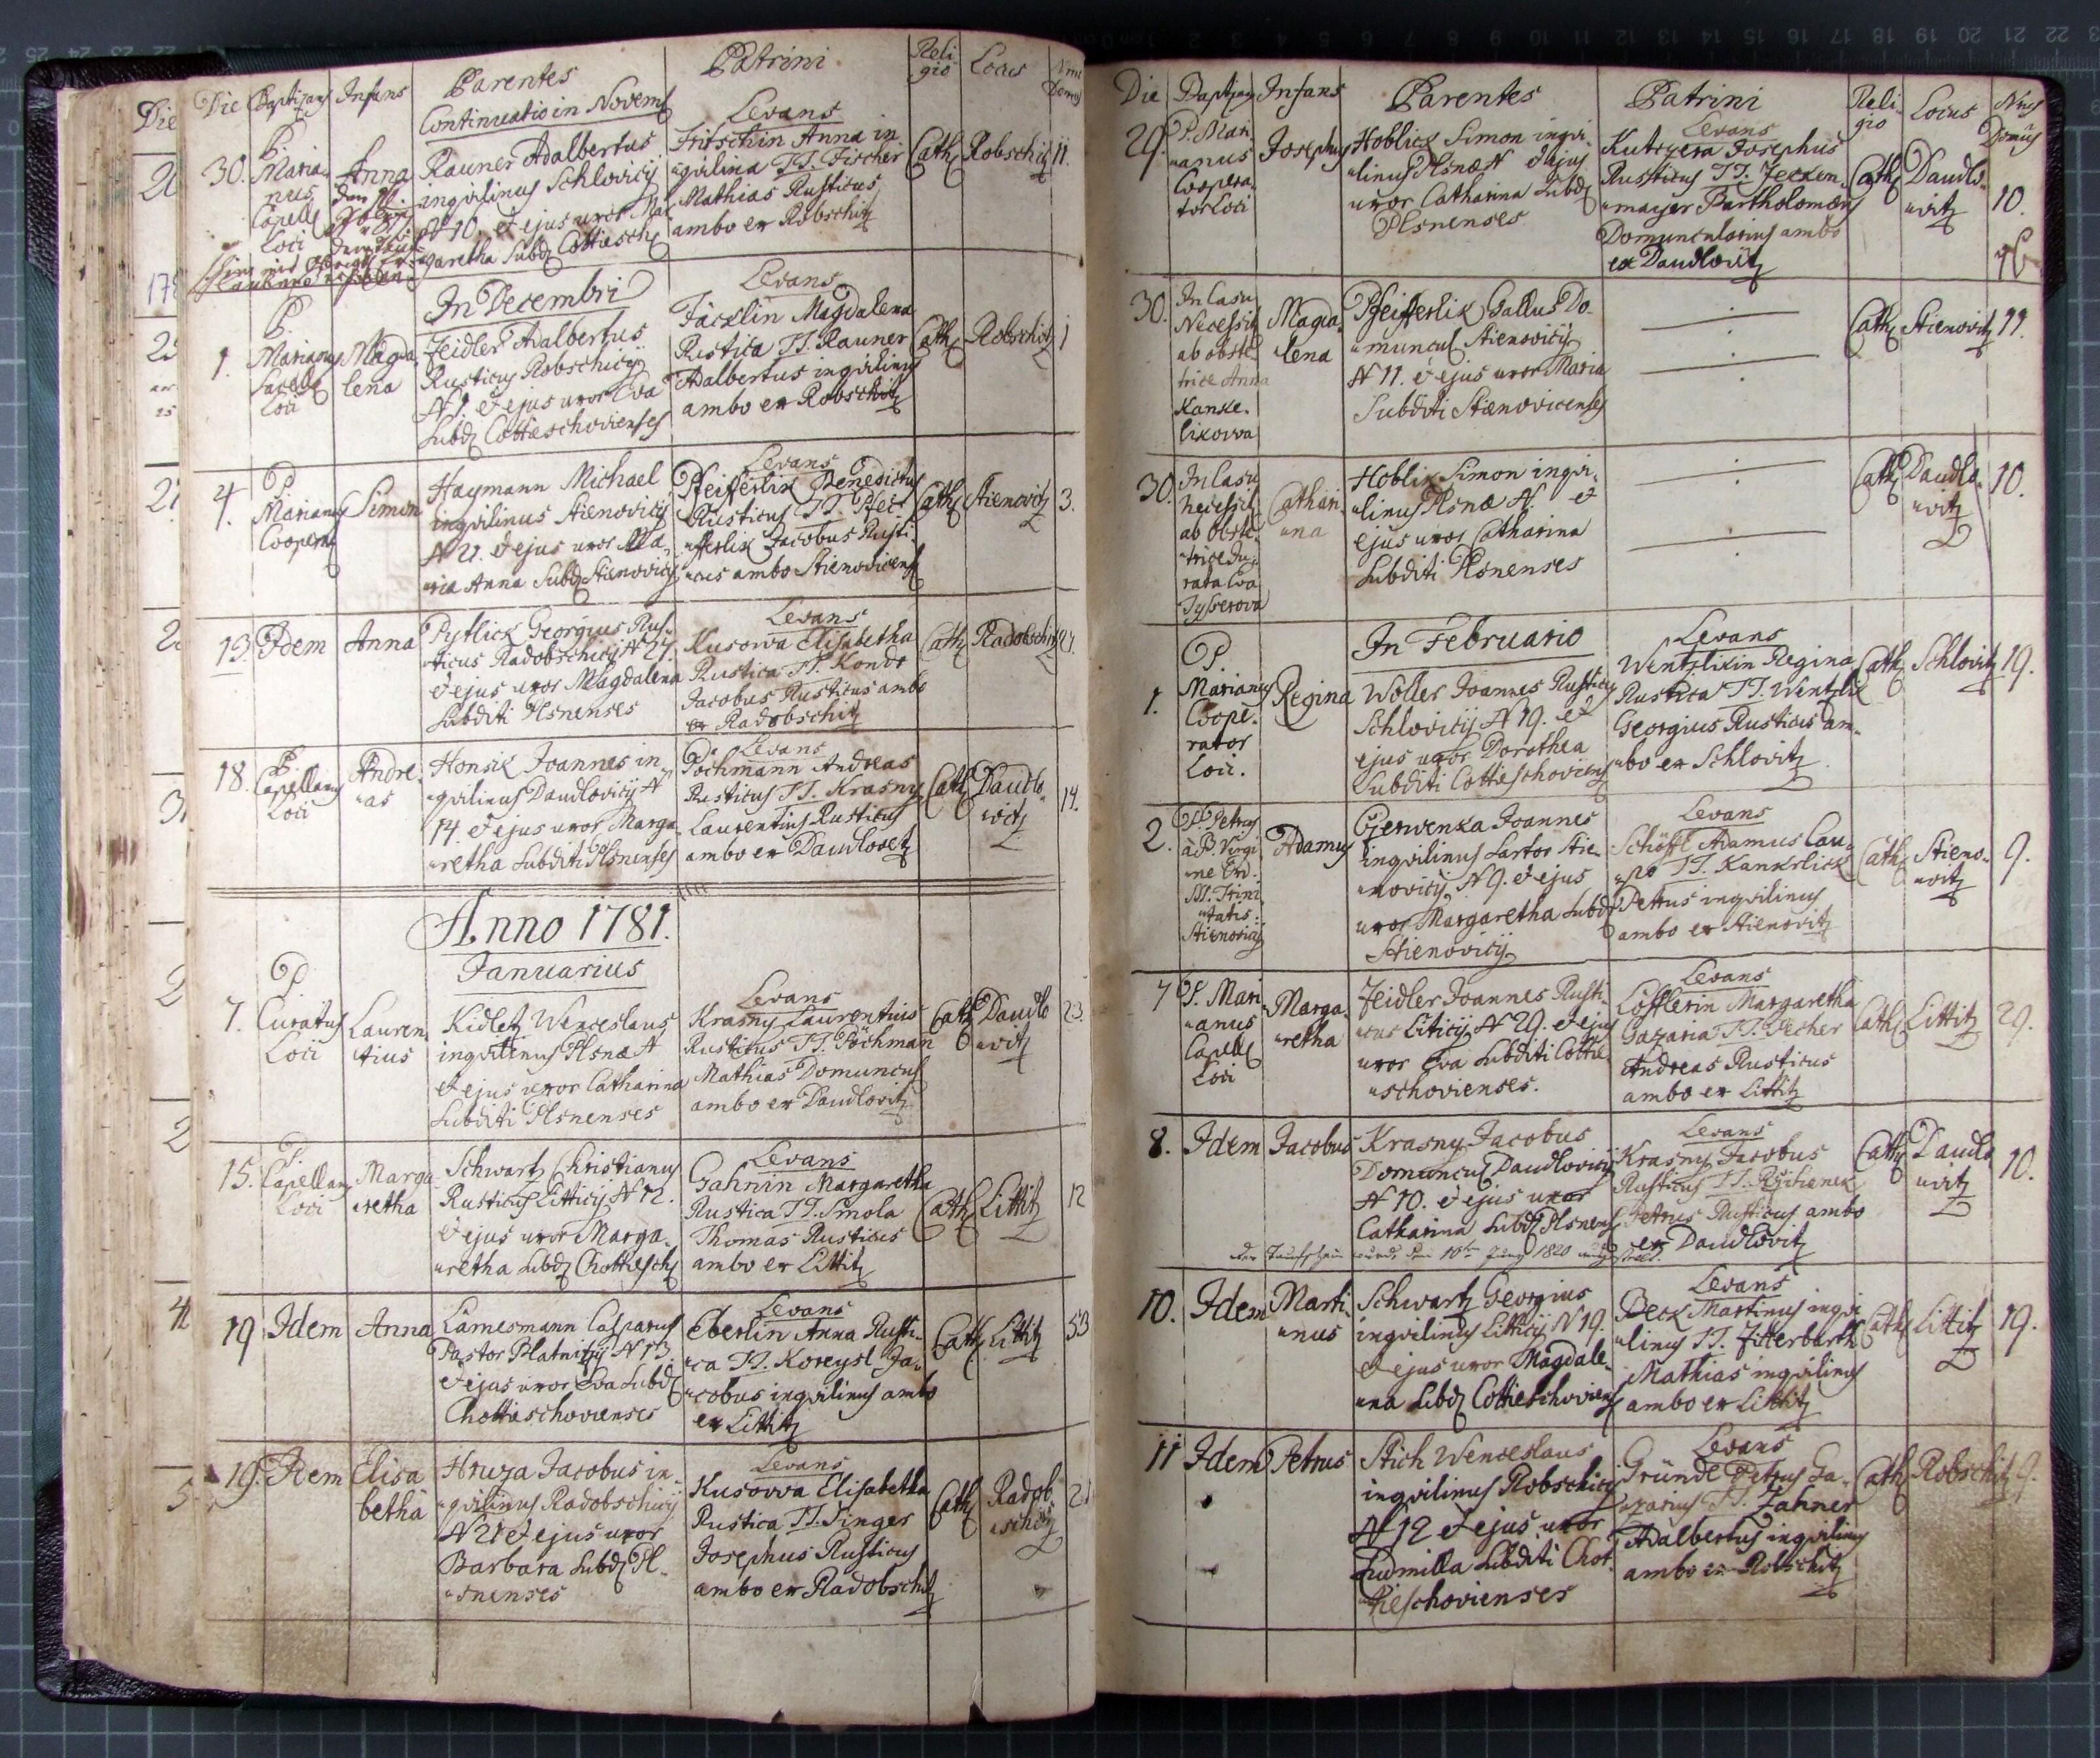 Die Baptizans Infans Parentes Patrini Reli- Locus
gio
Continuatio in Novemb
30. P. Maria- nus Capell Loci
Anna
Rauner Adalbertus
inqvilinus Schlovicij
N 10. et ejus uxor Mar
garetha Subd Cottiesch
Levans
Fritschin Anna in
qvilina TT. Fischer
Mathias Rusticus
ambo ex Robschitz
Cath Robschitz 11.
In Decembri
1. P. Marianus Capell Loci
Magda
lena
Zeidler Adalbertus
Rusticus Robschicij
N 1. et ejus uxor Eva
Subd Cottieschovienses
Levans
Jäcklin Magdalena
Rustica TT. Rauner
Adalbertus inqvilinus
ambo ex Robschitz
Cath Robschitz 1
4. P Marianus Cooperat
Simon
Haymann Michael
inqvilinus Stienovicij
N 21. et ejus uxor Ma
ria Anna Subd Stienovicij
Levans
Pfeifferlik Benedictus
Rusticus TT. Pfei
fferlik Jacobus Rusti
cus ambo Stienovicens
Cath Stienovitz 3.
13. Idem Anna
Pytlick Georgius Rus
ticus Radobschicij N 27.
et ejus uxor Magdalena
Subditi Plsnenses
Levans
Kusowa Elisabetha
Rustica TT. Kondr
Jacobus Rusticus ambo
ex Radobschitz
Cath Radobschitz 27.
18. P. Capellanus Loci
Andre
as
Honsik Joannes in
qvilinus Daudlovicij N
14. et ejus uxor Marga
retha Subditi Plsnenses
Levans
Pochmann Andreas
Rusticus TT. Krasny
Laurentius Rusticus
ambo ex Daudlovetz
Cath Daudlo
vitz
14.
Anno 1781.
Januarius
7. P Curatus Loci
Lauren
tius
Kidletz Wenceslaus
inqvilinus Plsnæ N
et ejus uxor Catharina
Subditi Plsnenses
Levans
Krasny Laurentius
Rusticus TT. Pöchman
Mathias Domuncul
ambo ex Daudlovitz
Cath Daudlo
vitz
23.
15. P Capellanus Loci
Marga
retha
Schwartz Christianus
Rusticus Litticij N 12.
et ejus uxor Marga
retha Subd Chottiesch
Levans
Gahnin Margaretha
Rustica TT. Smola
Thomas Rusticus
ambo ex Littitz
Cath Littitz 12
19 Idem Anna
Lamesmann Casparus
Pastor Blatnitzij N 13
et ejus uxor Eva Subd
Chottieschovienses
Levans
Eberlin Anna Rusti
ca TT. Koreysl Ja
cobus inqvilinus ambo
ex Littitz
Cath Littitz 53
19. Idem Elisa
betha
Hruza Jacobus in
qvilinus Radobschicij
N 21 et ejus uxor
Barbara Subd Pl
snenses
Levans
Kusovva Elisabetha
Rustica TT. Singer
Josephus Rusticus
ambo ex Radobschitz
Cath Radob
schitz
21
Die Baptizans Infans Parentes Patrini Reli- Locus Nrus
gio Domus
29. P. Mari
anus
Coopera
tor Loci
Josephus
Hoblick Simon inqvi
linus Plsnæ N et ejus
uxor Catharina Subd
Plsnenses
Levans
Kutzera Josephus
Rusticus TT. Jecken
mayer Bartholomæus
Domuncularius ambo
ex Daudlovitz
Cath Daudlo
vitz
10.
30. In Casu
Necessit
ab obste
trice Anna
Kanke.
likovva
Magda
lena
Pfeifferlik Gallus Do
muncul Stienovicij
N 11. et ejus uxor Maria
Subditi Stienovicenses
Cath Stienovitz 11.
30. In Casu
Necessit
ab Obste
trice Ju
rata Eva
Cathari
na
Hoblik Simon inqvi
linus Plsnæ N. et
ejus uxor Catharina
Subditi Plsnenses
Cath Daudlo
vitz
10.
In Februario
1. P. Marianus
Coope
rator
Loci.
Regina
Woller Joannes Rusticus
Schlovicij N 19. et
ejus uxor Dorothea
Subditi Cottieschoviens
Levans
Wentzlikin Regina
Rustica TT. Wentzlik
Georgius Rusticus am
bo ex Schlovitz
Cath Schlovitz 19.
2. P. Petrus
a B. Virgi
ne Ord.
SS. Trini
tatis
Stienovicij
Adamus
Czerwenka Joannes
inqvilinus Sartor Stie
novicij N 9. et ejus
uxor Margaretha Subd
Stienovicij
Levans
Schöffl Adamus Cau
po TT. Kankrlick
Petrus inqvilinus
ambo ex Stienovitz
Cath Stieno
vitz
9.
7 P. Mari
anus
Capell
Loci
Marga
retha
Zeidler Joannes Rusti
cus Liticij N 29. et ejus
uxor Eva Subditi Cottie
schovienses.
Levans
Löfflerin Margaretha
Gazaria TT. Pecher
Andreas Rusticus
ambo ex Littitz
Cath Littitz 29.
8. Idem Jacobus
Krasny Jacobus
Domuncul Daudlovicij
N 10. et ejus uxor
Catharina Subd Plsnens
Levans
Krasny Jacobus
Rusticus TT. Ryschenek
Petrus Rusticus ambo
ex Daudlovitz
Cath Daudlo
vitz
10.
der Taufschein wurde den 10ten Juny 1820 ausgestellt.
10. Idem Marti
nus
Schwartz Georgius
inqvilinus Litticij N 19.
et ejus uxor Magdale
na Subd Cottieschoviens
Levans
Beck Martinus inqvi
linus TT. Zitterbarth
Mathias inqvilinus
ambo ex Littitz
Cath Littitz 19.
11 Idem Petrus
Stich Wenceslaus
inqvilinus Robschicij
N 12 et ejus uxor
Ludmilla Subditi Chot
tieschovienses
Levans
Gründl Petrus Ga
zarius TT. Zahner
Adalbertus inqvilinus
ambo ex Robschitz
Cath Robschitz 9.